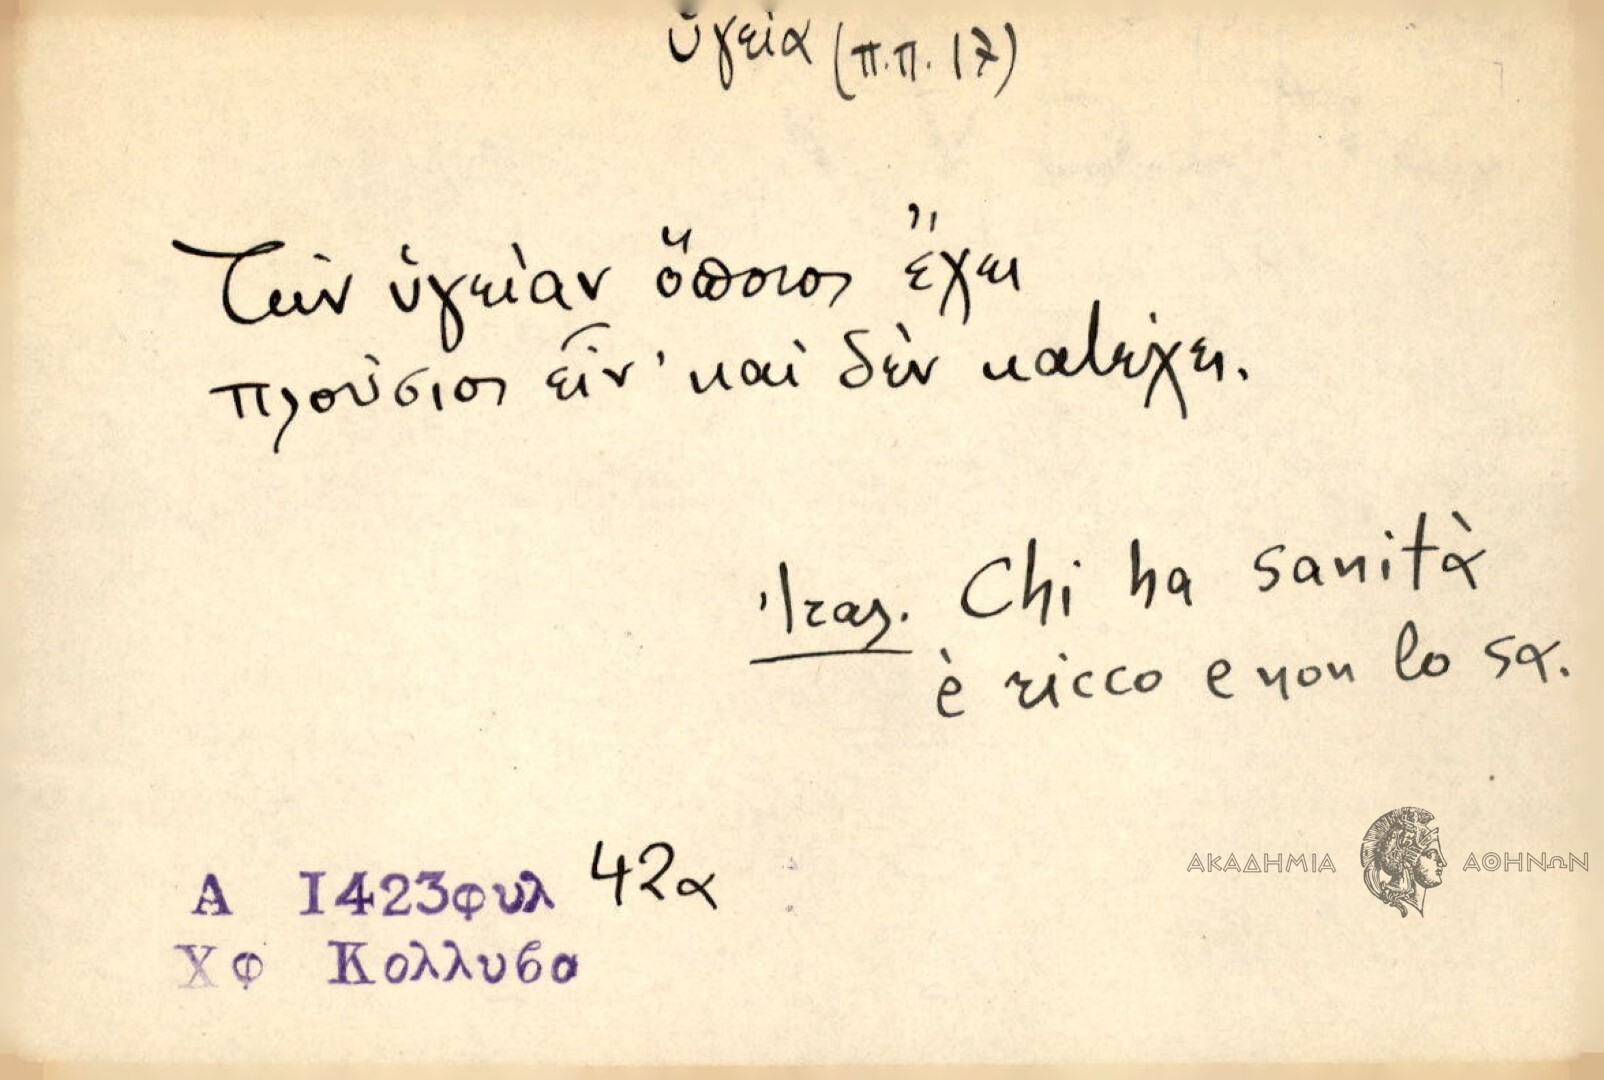 ὑγεία (π.π. 17)
Τὴν ὑγείαν ὅποιος ἔχει
πλούσιος εἶν' καὶ δὲν κατέχει.
Ἰταλ. Chi ha sanità
è ricco e non lo sa.
Α 1423φυλ 42α
Χφ Κολλυβα
ΑΚΑΔΗΜΙΑ ΑΘΗΝΩΝ